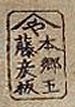 や
本郷
藤彦板